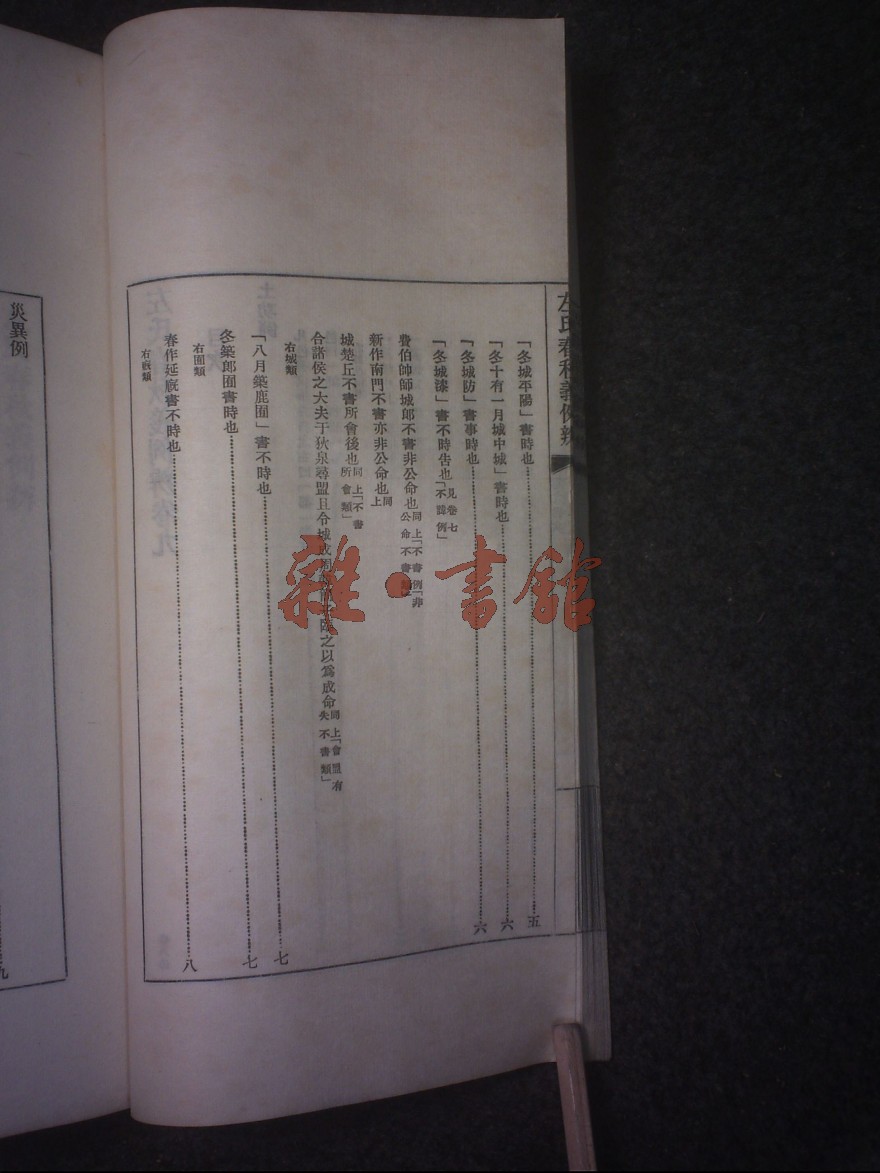 左氏春秋義例辨
「冬城平陽」書時也 五
「冬十有一月城中城」書時也 六
「冬城防」書事時也 六
「冬城漆」書不時告也見卷七「不諱例」
費伯帥師城郎不書非公命也同上「不書例「非公命不書類」
新作南門不書亦非公命也同上
城楚丘不書所會後也同上「不書所會類」
合諸侯之大夫于狄泉尋盟且令城成周 之以爲成命同上「會盟有失不書類」
右城類
「八月築鹿囿」書不時也 七
冬築郎囿書時也 七
右囿類
春作延廐書不時也 八
右廐類
災異例
九
雜·書館